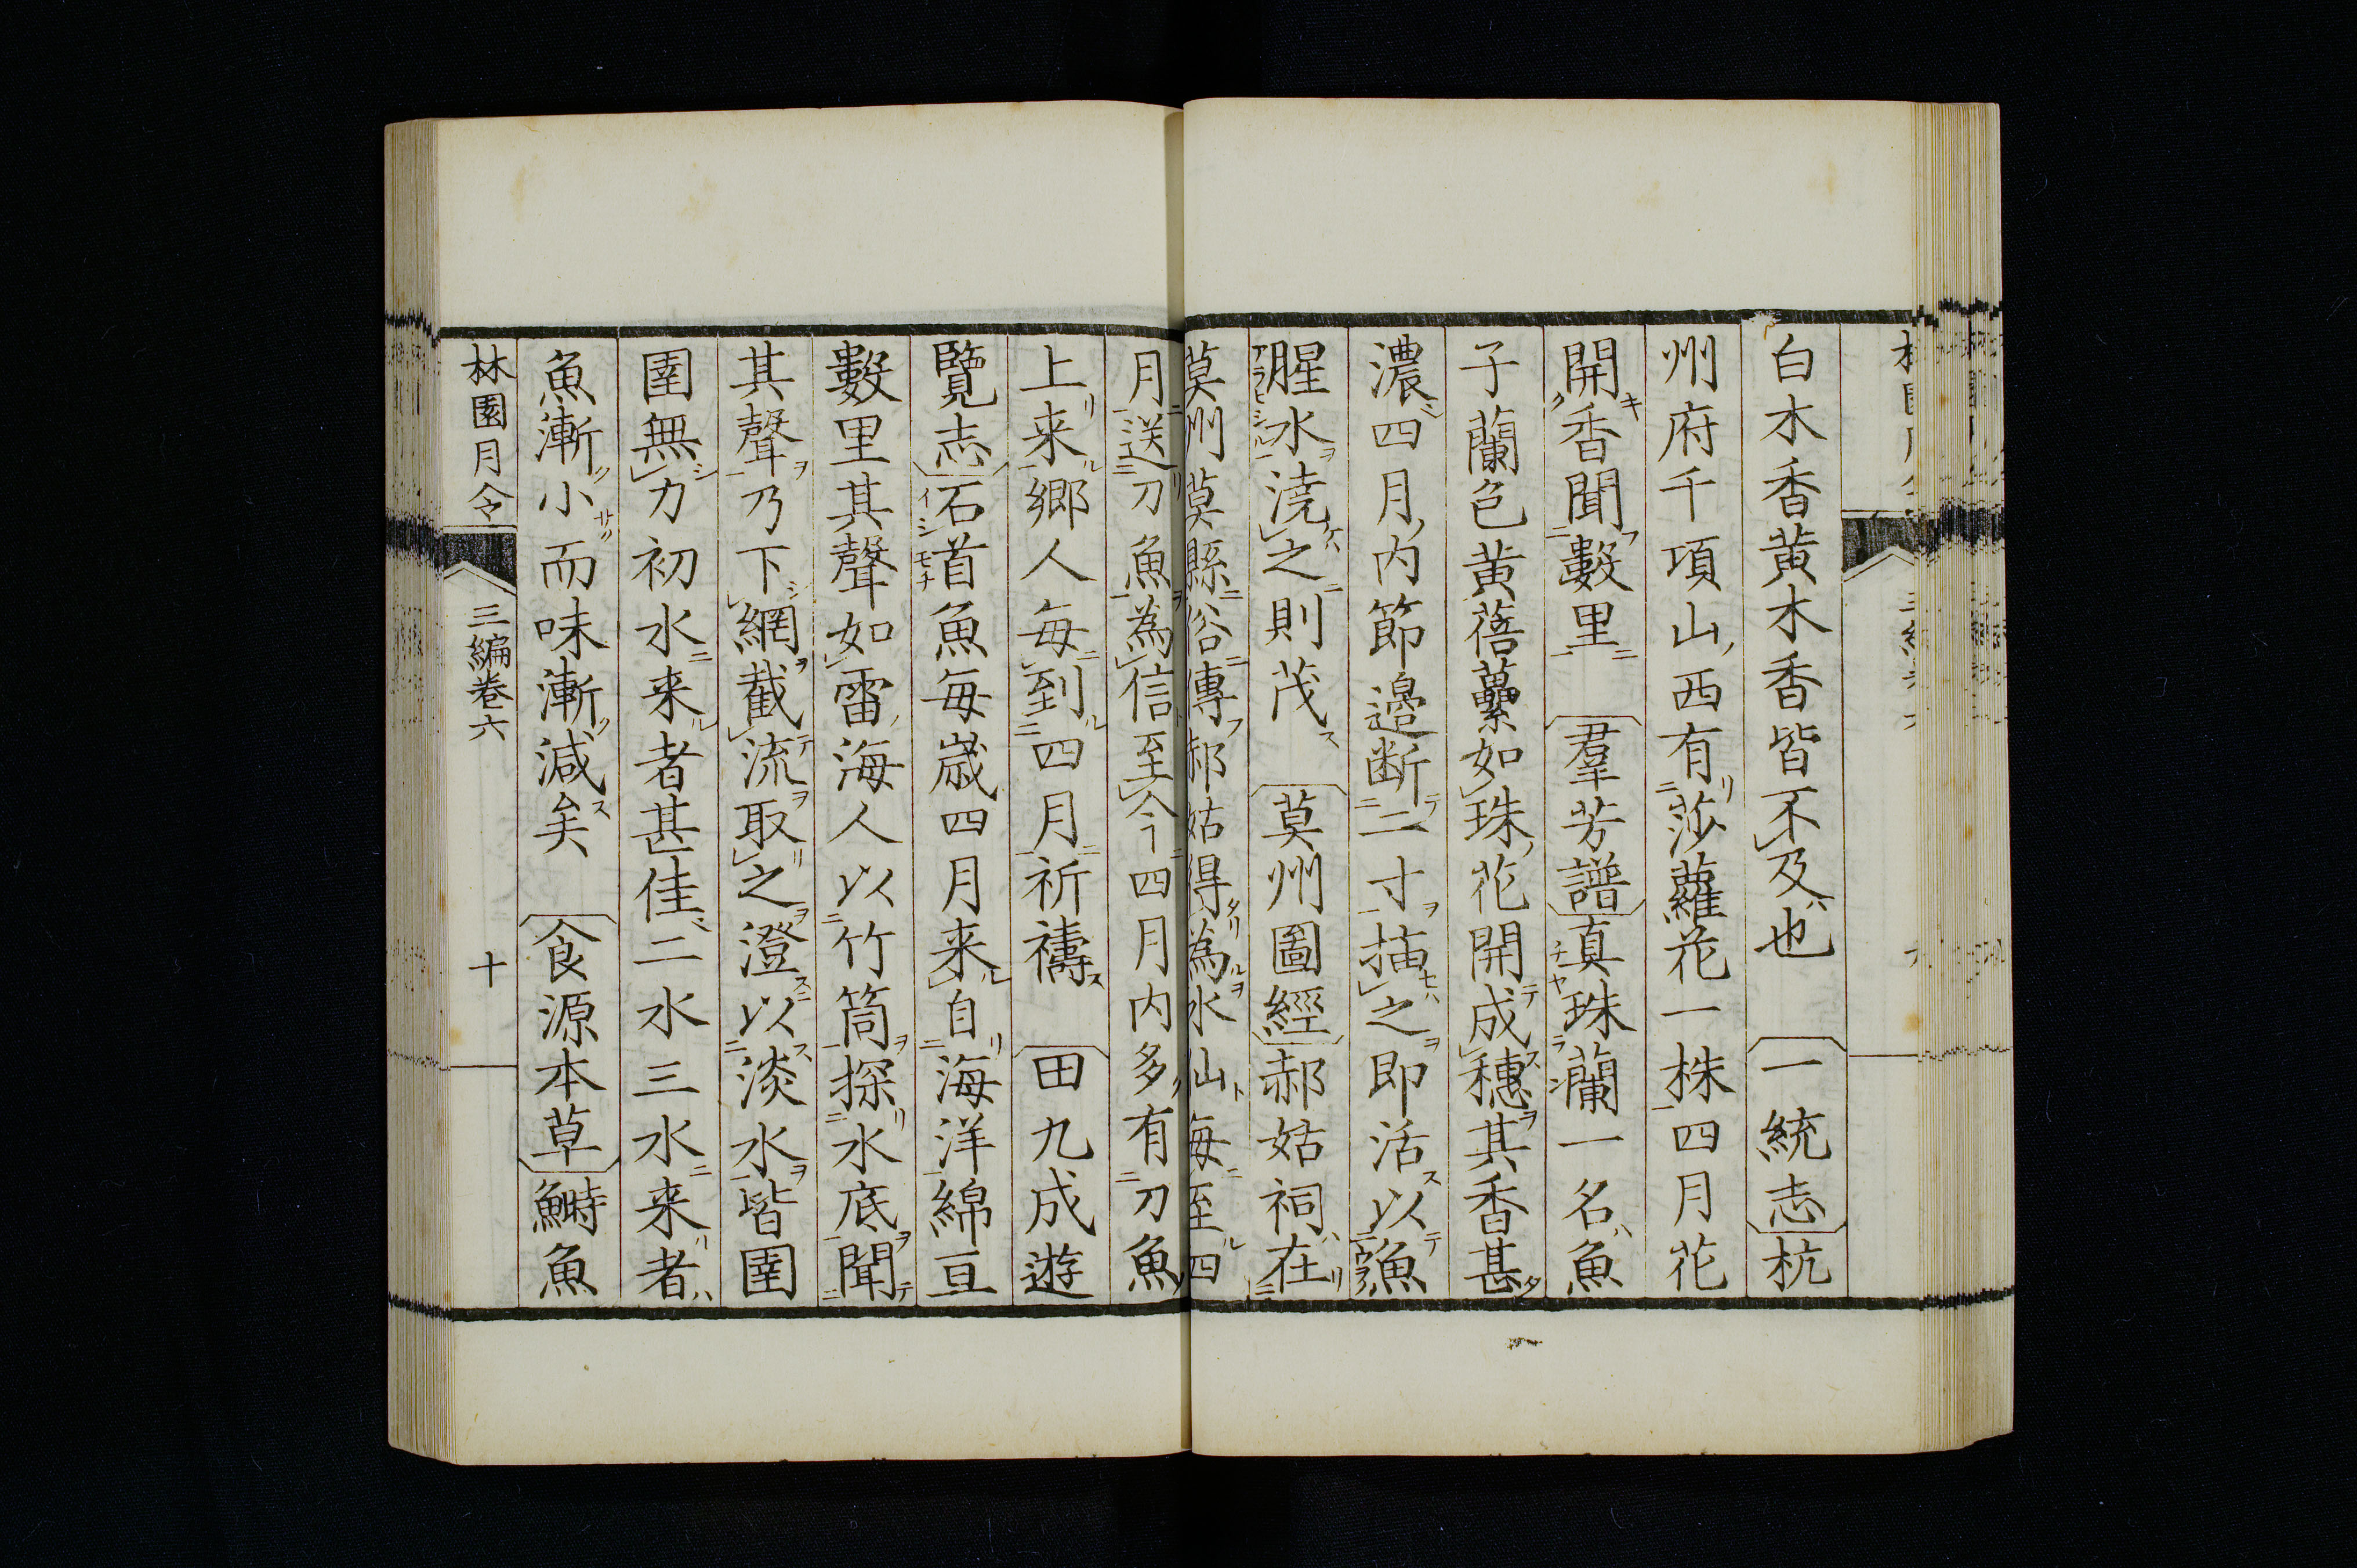 白木香黄木香皆不及也 一統志 杭
州府千項山西有莎蘿花一株四月花
開香聞數里 羣芳譜 真珠蘭一名魚
子蘭色黄蓓蘽如珠花開成穗其香甚
濃四月内節邉断二寸挿之即活以魚
腥水澆之則茂 莫州圖經 郝姑祠在
莫州莫縣俗傳郝姑得為水仙每至四
月送刀魚為信至今四月内多有刀魚
上来郷人每到四月祈禱 田九成遊
覽志 石首魚每嵗四月来自海洋綿亘
數里其聲如雷海人以竹筒探水底聞
其聲乃下網截流取之澄以淡水皆圉
圉無力初水来者甚佳二水三水来者
魚漸小而味漸減矣 食源本草 鰣魚
林園月令 三編卷六 十